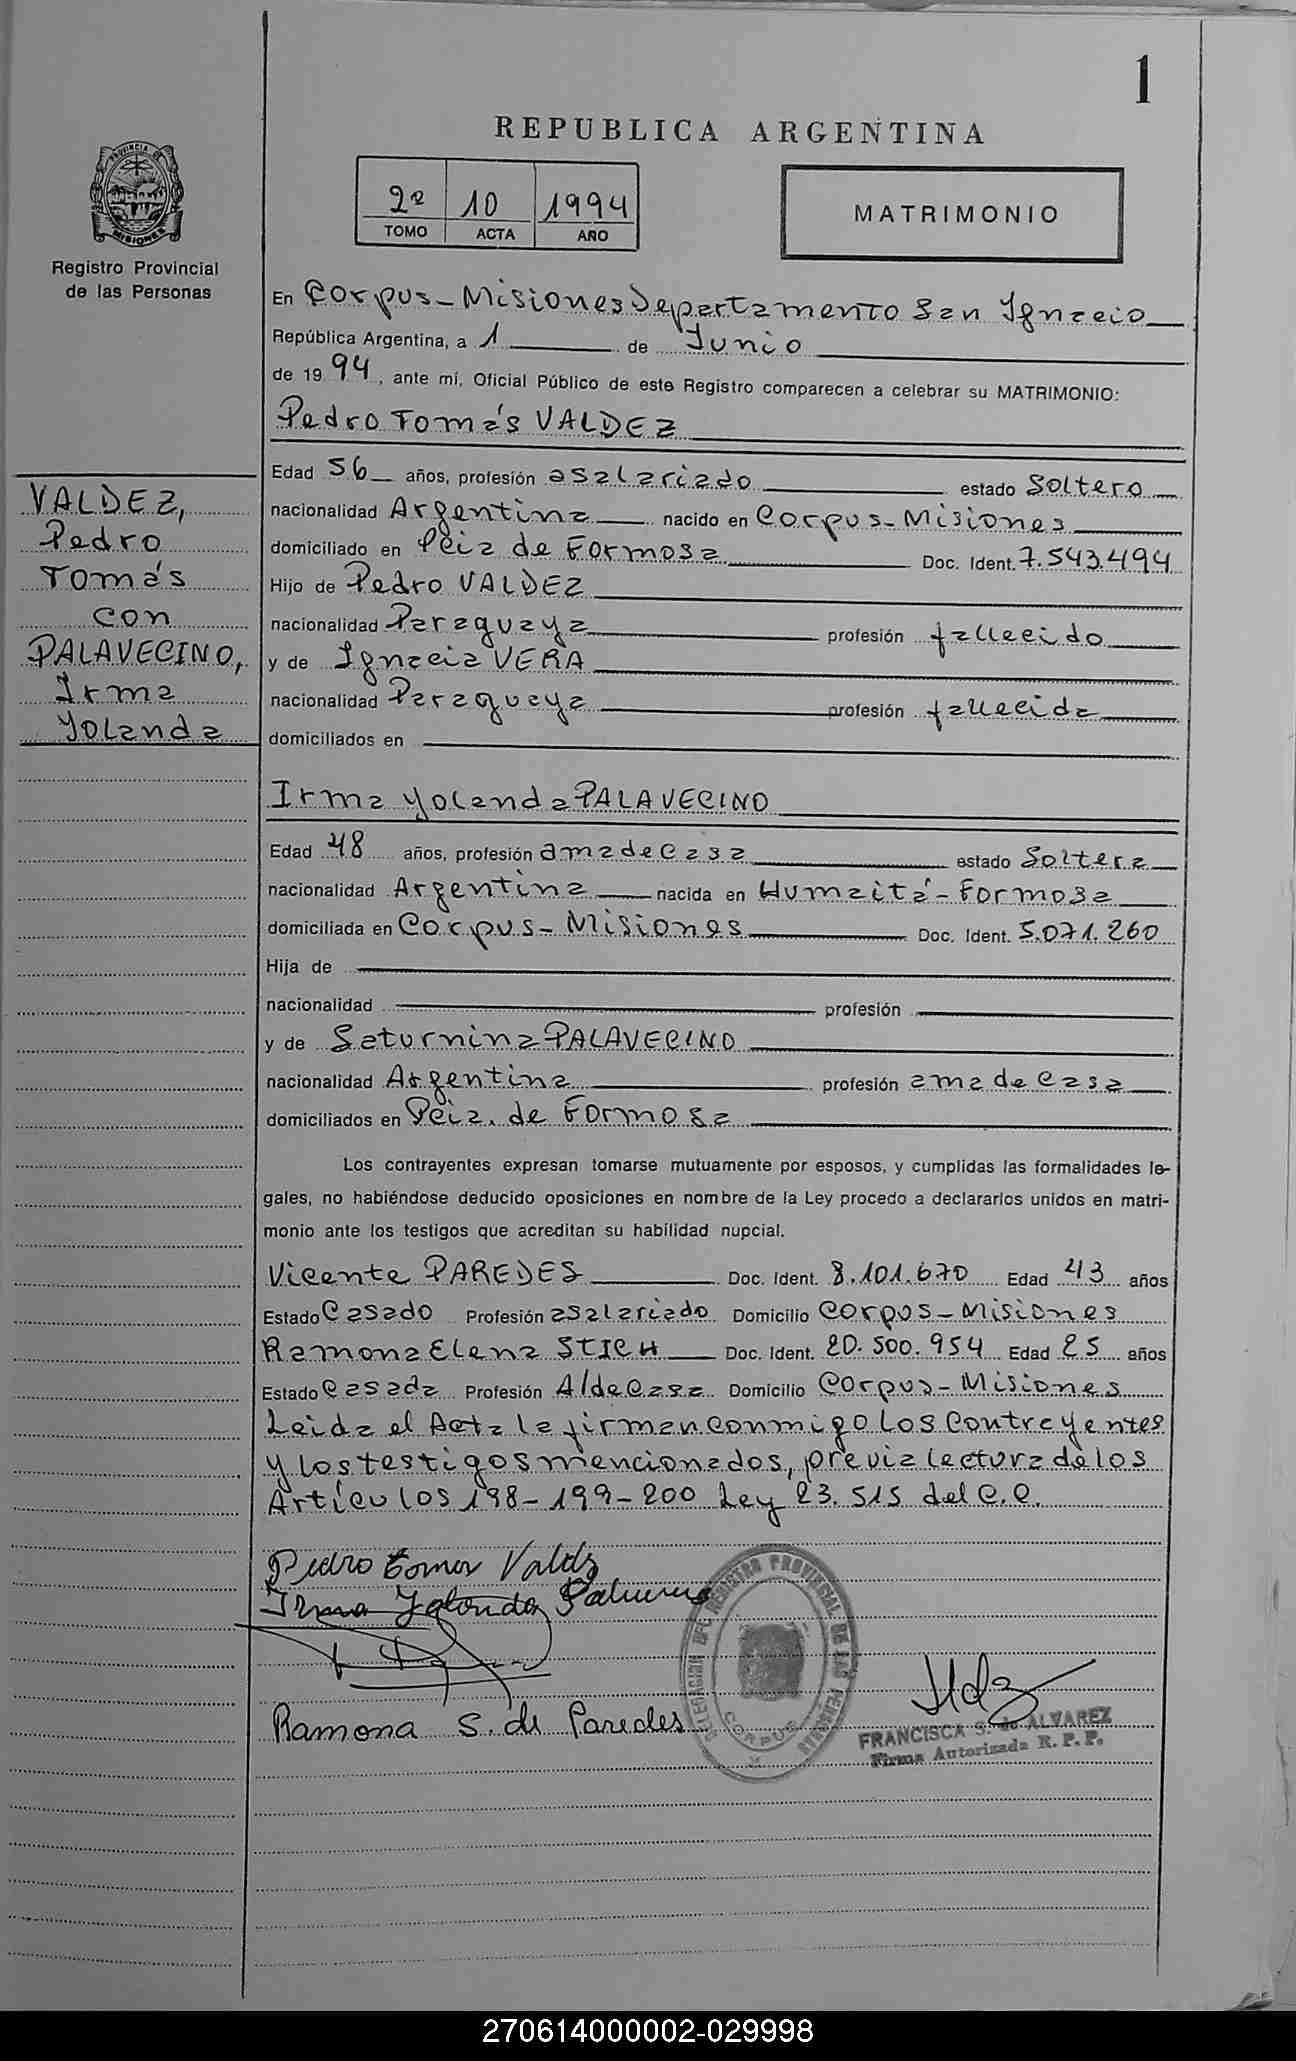 1
REPUBLICA ARGENTINA
2º 10 1994
TOMO ACTA AÑO
MATRIMONIO
PROVINCIA DE
MISIONES
Registro Provincial
de las Personas
En Corpus-Misiones Departamento San Ignacio
República Argentina, a 1 de Junio
de 19 94, ante mí, Oficial Público de este Registro comparecen a celebrar su MATRIMONIO:
Pedro Tomás VALDEZ
Edad 56 años, profesión asalariado estado Soltero
nacionalidad Argentina nacido en Corpus-Misiones
domiciliado en Pcia de Formosa Doc. Ident. 7.543.494
Hijo de Pedro VALDEZ
nacionalidad Paraguaya profesión fallecido
y de Ignacia VERA
nacionalidad Paraguaya profesión fallecida
domiciliados en
VALDEZ,
Pedro
Tomás
con
PALAVECINO,
Irma
Yolanda
Irma Yolanda PALAVECINO
Edad 48 años, profesión ama de Casa estado Soltera
nacionalidad Argentina nacida en Humaitá-Formosa
domiciliada en Corpus-Misiones Doc. Ident. 5.071.260
Hija de
nacionalidad profesión
y de Saturnina PALAVECINO
nacionalidad Argentina profesión ama de Casa
domiciliados en Pcia. de Formosa
Los contrayentes expresan tomarse mutuamente por esposos, y cumplidas las formalidades le-
gales, no habiéndose deducido oposiciones en nombre de la Ley procedo a declararlos unidos en matri-
monio ante los testigos que acreditan su habilidad nupcial.
Vicente PAREDES Doc. Ident. 8.101.670 Edad 43 años
Estado Casado Profesión asalariado Domicilio Corpus-Misiones
Ramona Elena STICH Doc. Ident. 20.500.954 Edad 25 años
Estado Casada Profesión A/de Casa Domicilio Corpus-Misiones
Leida el Acta la firman conmigo los Contrayentes
y los testigos mencionados, previa lectura de los
Artículos 198-199-200 Ley 23.515 del C.C.
Pedro Tomas Valdez
Irma Yolanda
Ramona S. de Paredes
REGISTRO PROVINCIAL DE LAS PERSONAS
DELEGACION
CORPUS
FRANCISCA S. de ALVAREZ
Firma Autorizada R. P. P.
270614000002-029998